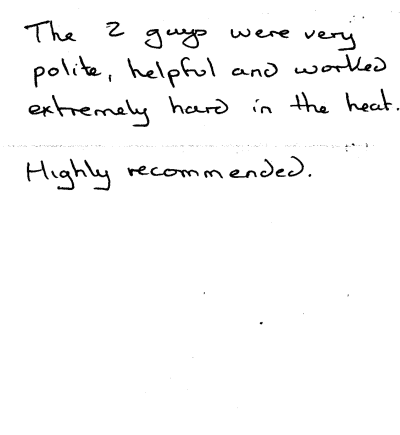 The 2 guys were very
polite, helpful and worked
extremely hard in the heat.
Highly recommended.